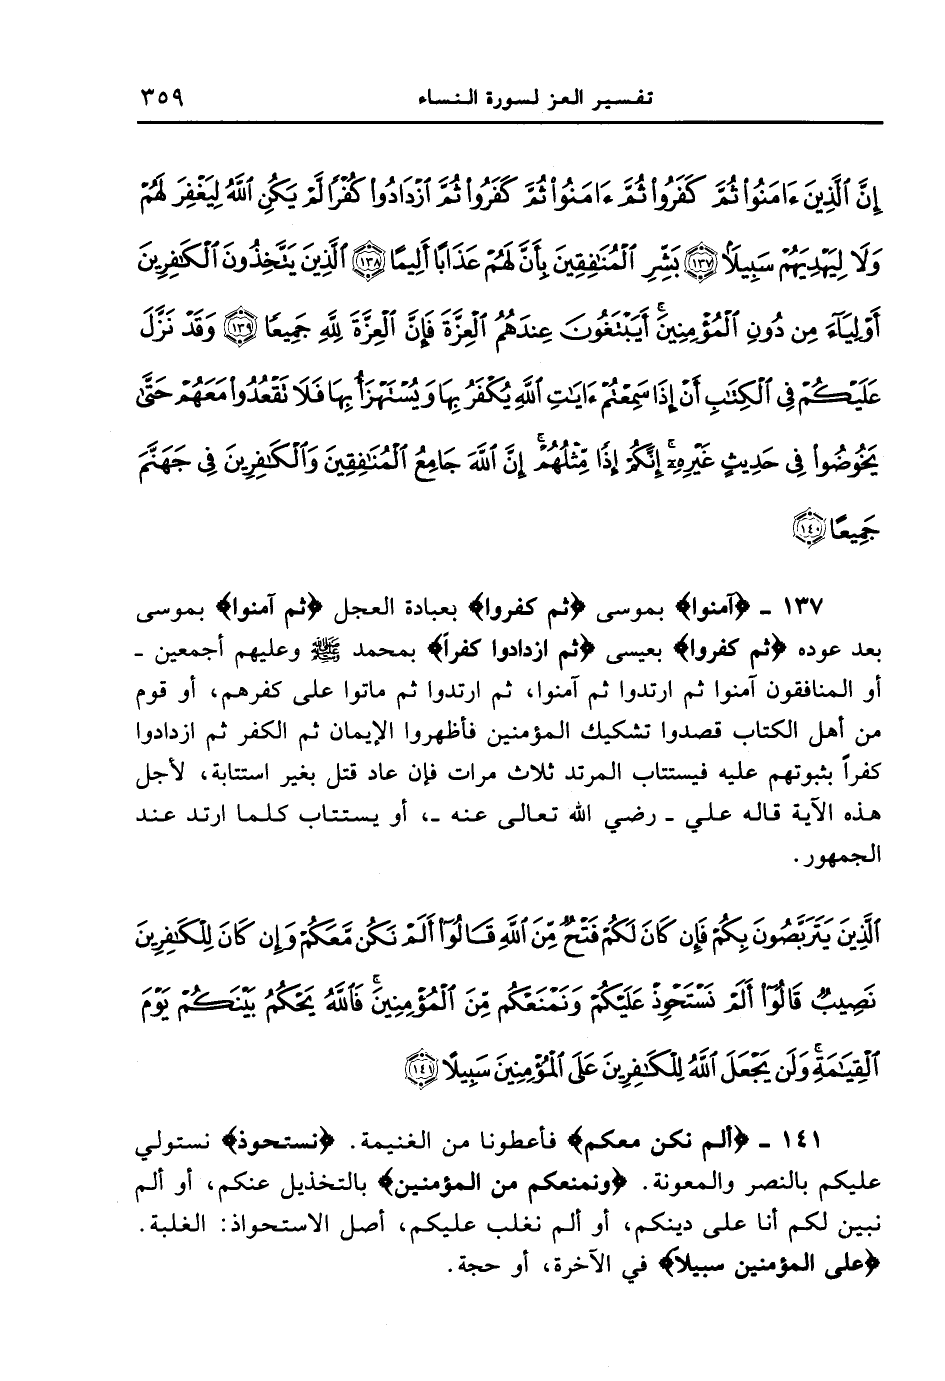 تفسير العز لسورة النساء ٣٥٩
إِنَّ ٱلَّذِينَ ءَامَنُوا۟ ثُمَّ كَفَرُوا۟ ثُمَّ ءَامَنُوا۟ ثُمَّ كَفَرُوا۟ ثُمَّ ٱزْدَادُوا۟ كُفْرًا لَّمْ يَكُنِ ٱللَّهُ لِيَغْفِرَ لَهُمْ
وَلَا لِيَهْدِيَهُمْ سَبِيلًا ١٣٧ بَشِّرِ ٱلْمُنَٰفِقِينَ بِأَنَّ لَهُمْ عَذَابًا أَلِيمًا ١٣٨ ٱلَّذِينَ يَتَّخِذُونَ ٱلْكَٰفِرِينَ
أَوْلِيَآءَ مِن دُونِ ٱلْمُؤْمِنِينَ ۚ أَيَبْتَغُونَ عِندَهُمُ ٱلْعِزَّةَ فَإِنَّ ٱلْعِزَّةَ لِلَّهِ جَمِيعًا ١٣٩ وَقَدْ نَزَّلَ
عَلَيْكُمْ فِى ٱلْكِتَٰبِ أَنْ إِذَا سَمِعْتُمْ ءَايَٰتِ ٱللَّهِ يُكْفَرُ بِهَا وَيُسْتَهْزَأُ بِهَا فَلَا تَقْعُدُوا۟ مَعَهُمْ حَتَّىٰ
يَخُوضُوا۟ فِى حَدِيثٍ غَيْرِهِۦٓ ۚ إِنَّكُمْ إِذًا مِّثْلُهُمْ ۗ إِنَّ ٱللَّهَ جَامِعُ ٱلْمُنَٰفِقِينَ وَٱلْكَٰفِرِينَ فِى جَهَنَّمَ
جَمِيعًا ١٤٠
١٣٧ - ﴿آمنوا﴾ بموسى ﴿ثم كفروا﴾ بعبادة العجل ﴿ثم آمنوا﴾ بموسى
بعد عوده ﴿ثم كفروا﴾ بعيسى ﴿ثم ازدادوا كفراً﴾ بمحمد ﷺ وعليهم أجمعين -
أو المنافقون آمنوا ثم ارتدوا ثم آمنوا، ثم ارتدوا ثم ماتوا على كفرهم، أو قوم
من أهل الكتاب قصدوا تشكيك المؤمنين فأظهروا الإيمان ثم الكفر ثم ازدادوا
كفراً بثبوتهم عليه فيستتاب المرتد ثلاث مرات فإن عاد قتل بغير استتابة، لأجل
هذه الآية قاله علي - رضي الله تعالى عنه -، أو يستتاب كلما ارتد عند
الجمهور.
ٱلَّذِينَ يَتَرَبَّصُونَ بِكُمْ فَإِن كَانَ لَكُمْ فَتْحٌ مِّنَ ٱللَّهِ قَالُوٓا۟ أَلَمْ نَكُن مَّعَكُمْ وَإِن كَانَ لِلْكَٰفِرِينَ
نَصِيبٌ قَالُوٓا۟ أَلَمْ نَسْتَحْوِذْ عَلَيْكُمْ وَنَمْنَعْكُم مِّنَ ٱلْمُؤْمِنِينَ ۚ فَٱللَّهُ يَحْكُمُ بَيْنَكُمْ يَوْمَ
ٱلْقِيَٰمَةِ ۗ وَلَن يَجْعَلَ ٱللَّهُ لِلْكَٰفِرِينَ عَلَى ٱلْمُؤْمِنِينَ سَبِيلًا ١٤١
١٤١ - ﴿ألم نكن معكم﴾ فأعطونا من الغنيمة. ﴿نستحوذ﴾ نستولي
عليكم بالنصر والمعونة. ﴿ونمنعكم من المؤمنين﴾ بالتخذيل عنكم، أو ألم
نبين لكم أنا على دينكم، أو ألم نغلب عليكم، أصل الاستحواذ: الغلبة.
﴿على المؤمنين سبيلاً﴾ في الآخرة، أو حجة.